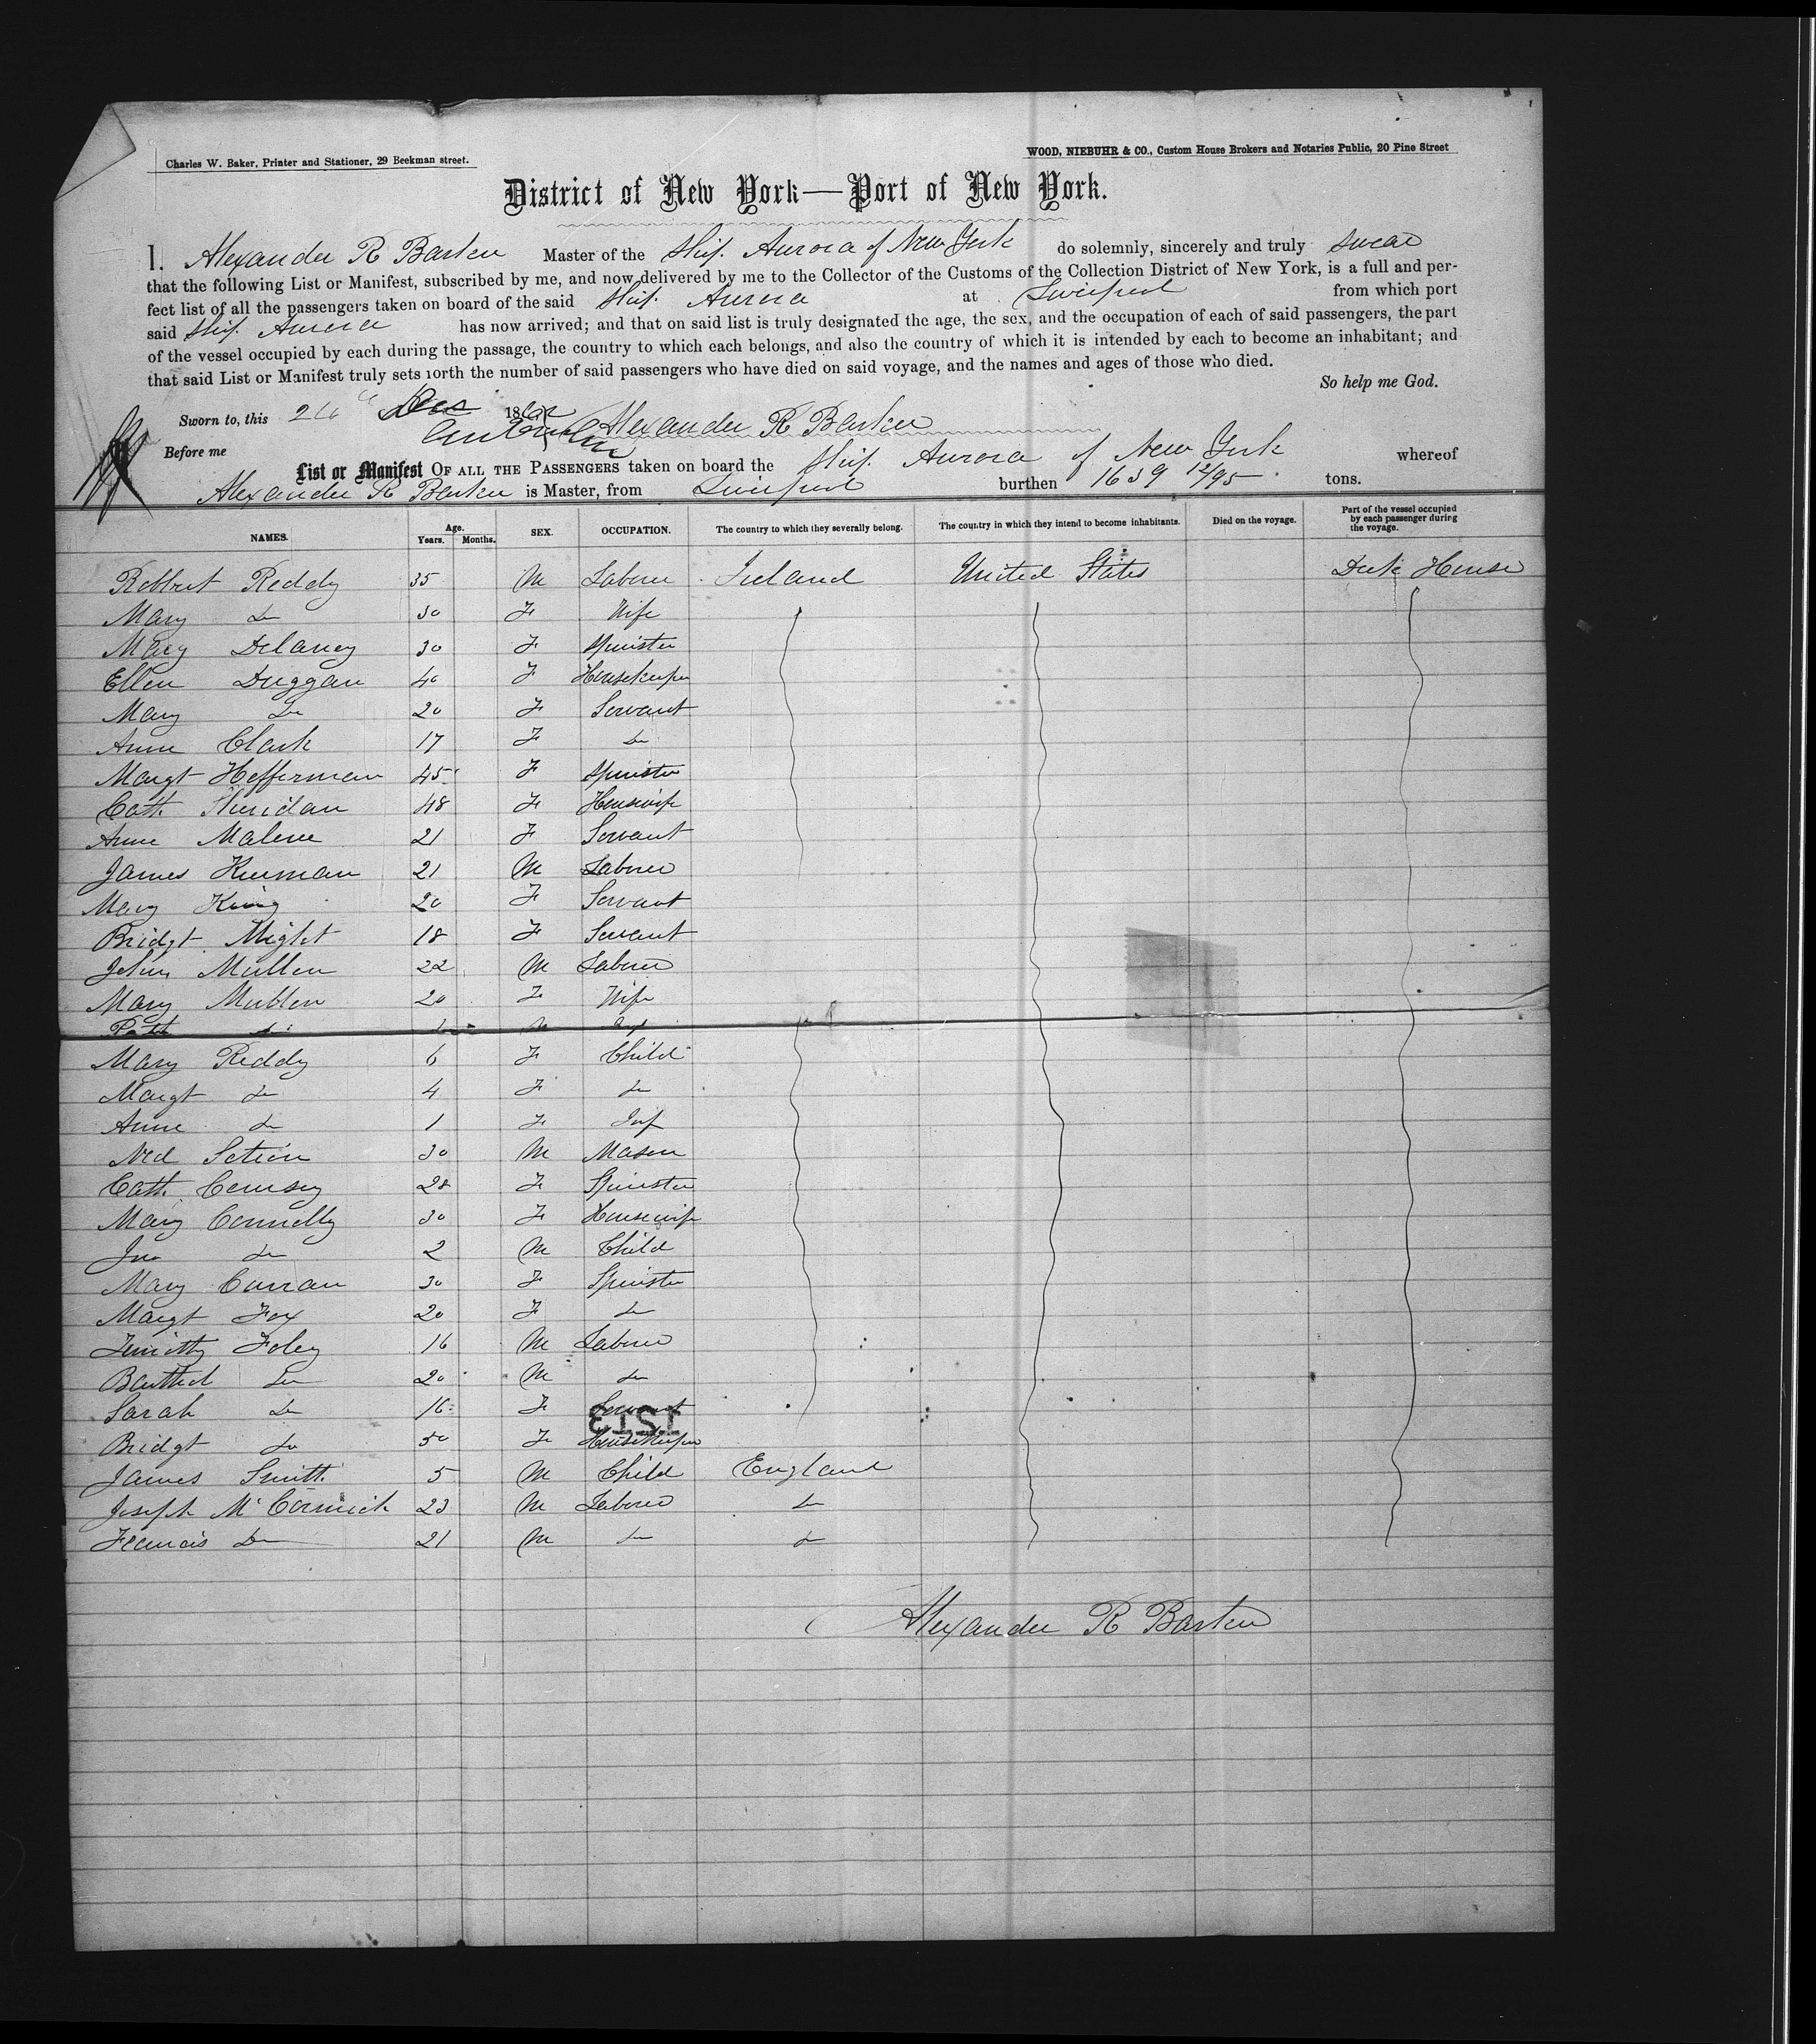 Charles W. Baker, Printer and Stationer, 29 Beekman street.
WOOD, NIEBUHR & CO., Custom House Brokers and Notaries Public, 20 Pine Street
District of New York—Port of New York.
I. Alexander R Barker Master of the Ship Aurora of New York do solemnly, sincerely and truly swear
that the following List or Manifest, subscribed by me, and now delivered by me to the Collector of the Customs of the Collection District of New York, is a full and per-
fect list of all the passengers taken on board of the said Ship Aurora at Liverpool from which port
said Ship Aurora has now arrived; and that on said list is truly designated the age, the sex, and the occupation of each of said passengers, the part
of the vessel occupied by each during the passage, the country to which each belongs, and also the country of which it is intended by each to become an inhabitant; and
that said List or Manifest truly sets forth the number of said passengers who have died on said voyage, and the names and ages of those who died.
So help me God.
Sworn to, this 26 Dec 1862 Alexander R Barker
Before me
List or Manifest OF ALL THE PASSENGERS taken on board the Ship Aurora of New York whereof
Alexander R Barker is Master, from Liverpool burthen 1639 12/95 tons.
NAMES. Age. Years. Months. SEX. OCCUPATION. The country to which they severally belong. The country in which they intend to become inhabitants. Died on the voyage. Part of the vessel occupied by each passenger during the voyage.
Robbert Reddy 35 M Laborer Ireland United States Deck House
Mary Do 30 F Wife
Mary Delaney 30 F Spinster
Ellen Duggan 40 F Housekeeper
Mary Do 20 F Servant
Anne Clark 17 F Do
Margt Hefferman 45 F Spinster
Cath Sheridan 48 F Housewife
Anne Malone 21 F Servant
James Kiernan 21 M Laborer
Mary King 20 F Servant
Bridgt Might 18 F Servant
John Mullen 22 M Laborer
Mary Mullen 20 F Wife
Patk Do M
Mary Reddy 6 F Child
Margt Do 4 F Do
Anne Do 1 F Inf
Ned 30 M Mason
Cath 28 F Spinster
Mary Connelly 30 F Housewife
Jno Do 2 M Child
Mary Curran 30 F Spinster
Margt Fox 20 F Do
Timothy Foley 16 M Laborer
Do 20 M Do
Sarah Do 16 F Servant
Bridgt Do 50 F Housekeeper
1513
James Smith 5 M Child England
Joseph McCormick 23 M Laborer Do
Francis Do 21 M Do Do
Alexander R Barker